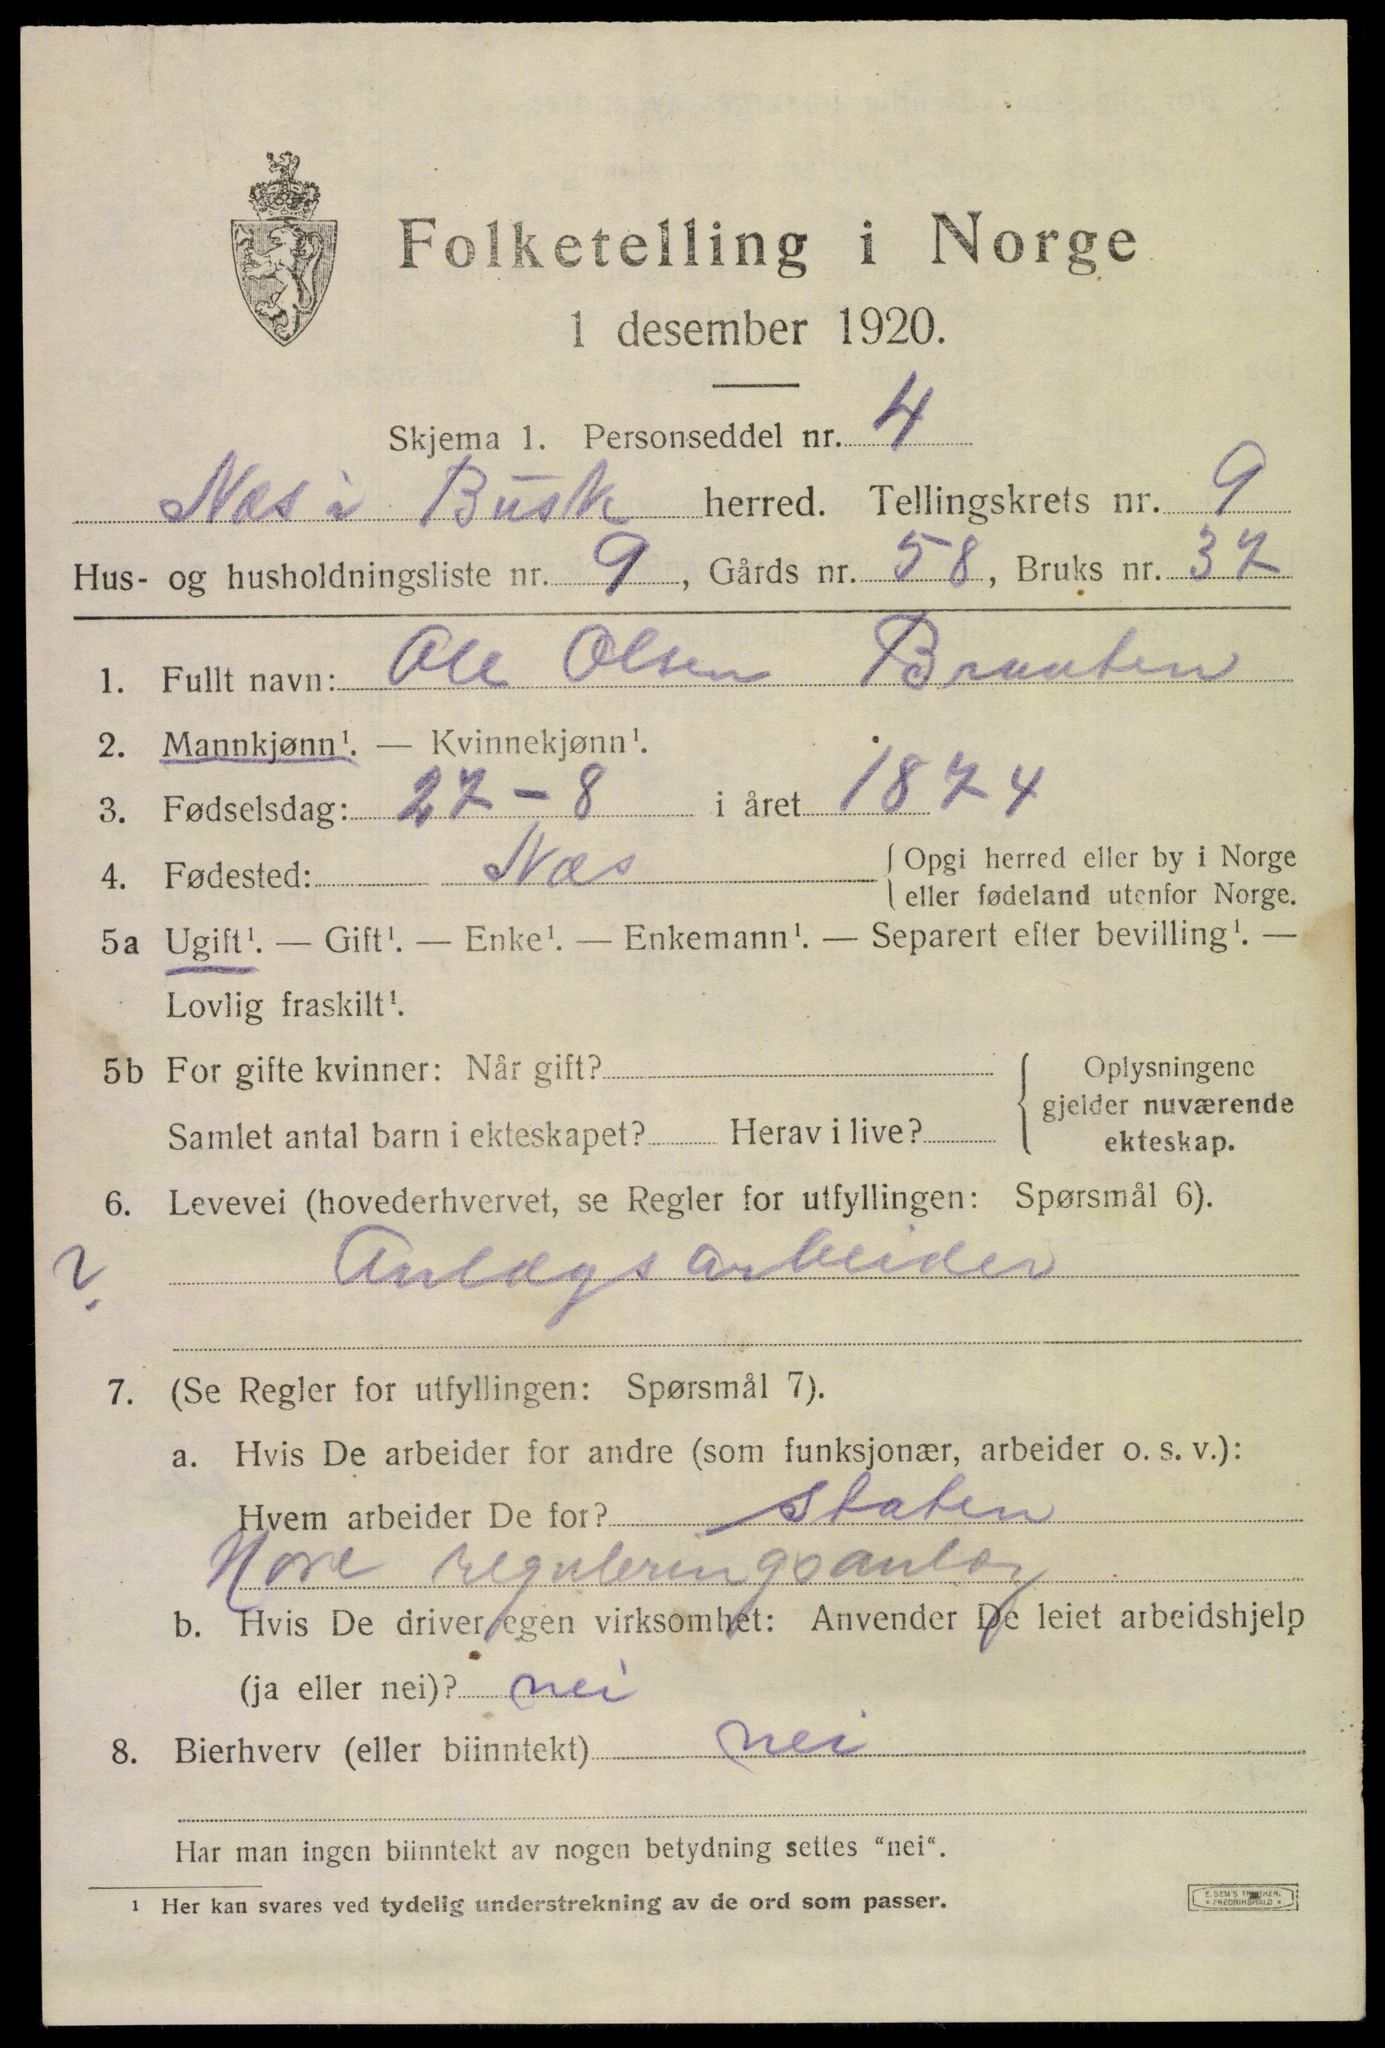 Folketelling i Norge
1 desember 1920.
Skjema 1. Personseddel nr. 4
Næs i Busk herred. Tellingskrets nr. 9
Hus- og husholdningsliste nr. 9, Gårds nr. 58, Bruks nr. 37
1. Fullt navn: Ole Olsen Braaten
2. Mannkjønn¹. — Kvinnekjønn¹.
3. Fødselsdag: 27 - 8 i året 1874
4. Fødested: Næs { Opgi herred eller by i Norge
eller fødeland utenfor Norge.
5a Ugift¹. — Gift¹. — Enke¹. — Enkemann¹. — Separert efter bevilling¹. —
Lovlig fraskilt¹.
5b For gifte kvinner: Når gift?
Samlet antal barn i ekteskapet? Herav i live?
{ Oplysningene
gjelder nuværende
ekteskap.
6. Levevei (hovederhvervet, se Regler for utfyllingen: Spørsmål 6).
? Anlægsarbeider
7. (Se Regler for utfyllingen: Spørsmål 7).
a. Hvis De arbeider for andre (som funksjonær, arbeider o. s. v.):
Hvem arbeider De for? Staten
Nore reguleringsanlæg
b. Hvis De driver egen virksomhet: Anvender De leiet arbeidshjelp
(ja eller nei)? nei
8. Bierhverv (eller biinntekt) nei
Har man ingen biinntekt av nogen betydning settes “nei“.
¹ Her kan svares ved tydelig understrekning av de ord som passer.
E. SEM'S TRYKKERI.
* FREDRIKSHALD *